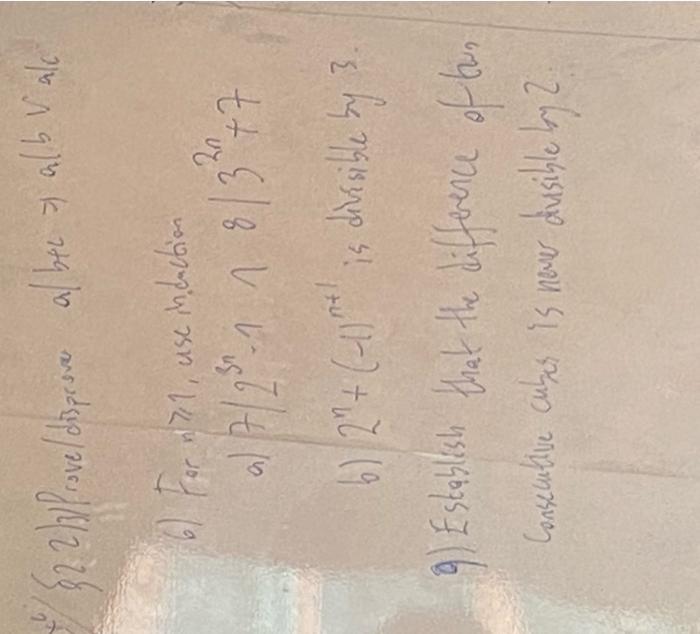 {2.2} 3) Prove/disprove a|b+c ⇒ a|b ∨ a|c
6) For n≥1, use induction
a) 7|2^{3n}-1 ∧ 8|3^{2n}+7
b) 2^n+(-1)^{n+1} is divisible by 3.
9) Establish that the difference of two
Consecutive cubes is never divisible by 2.